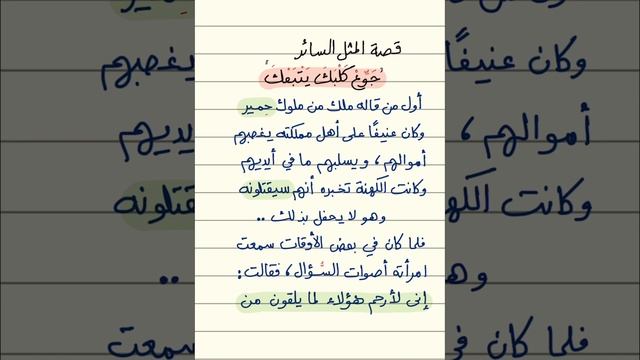 قصة المثل السائر
"جَوِّعْ كَلْبَكَ يَتْبَعْكَ"
أول من قاله ملك من ملوك حمير
وكان عنيفًا على أهل مملكته يغصبهم
أموالهم، ويسلبهم ما في أيديهم
وكانت الكهنة تخبره أنهم سيقتلونه
وهو لا يحفل بذلك ..
فلما كان في بعض الأوقات سمعت
امرأته أصوات السُّؤال، فقالت:
إني لأرحم هؤلاء لما يلقون من